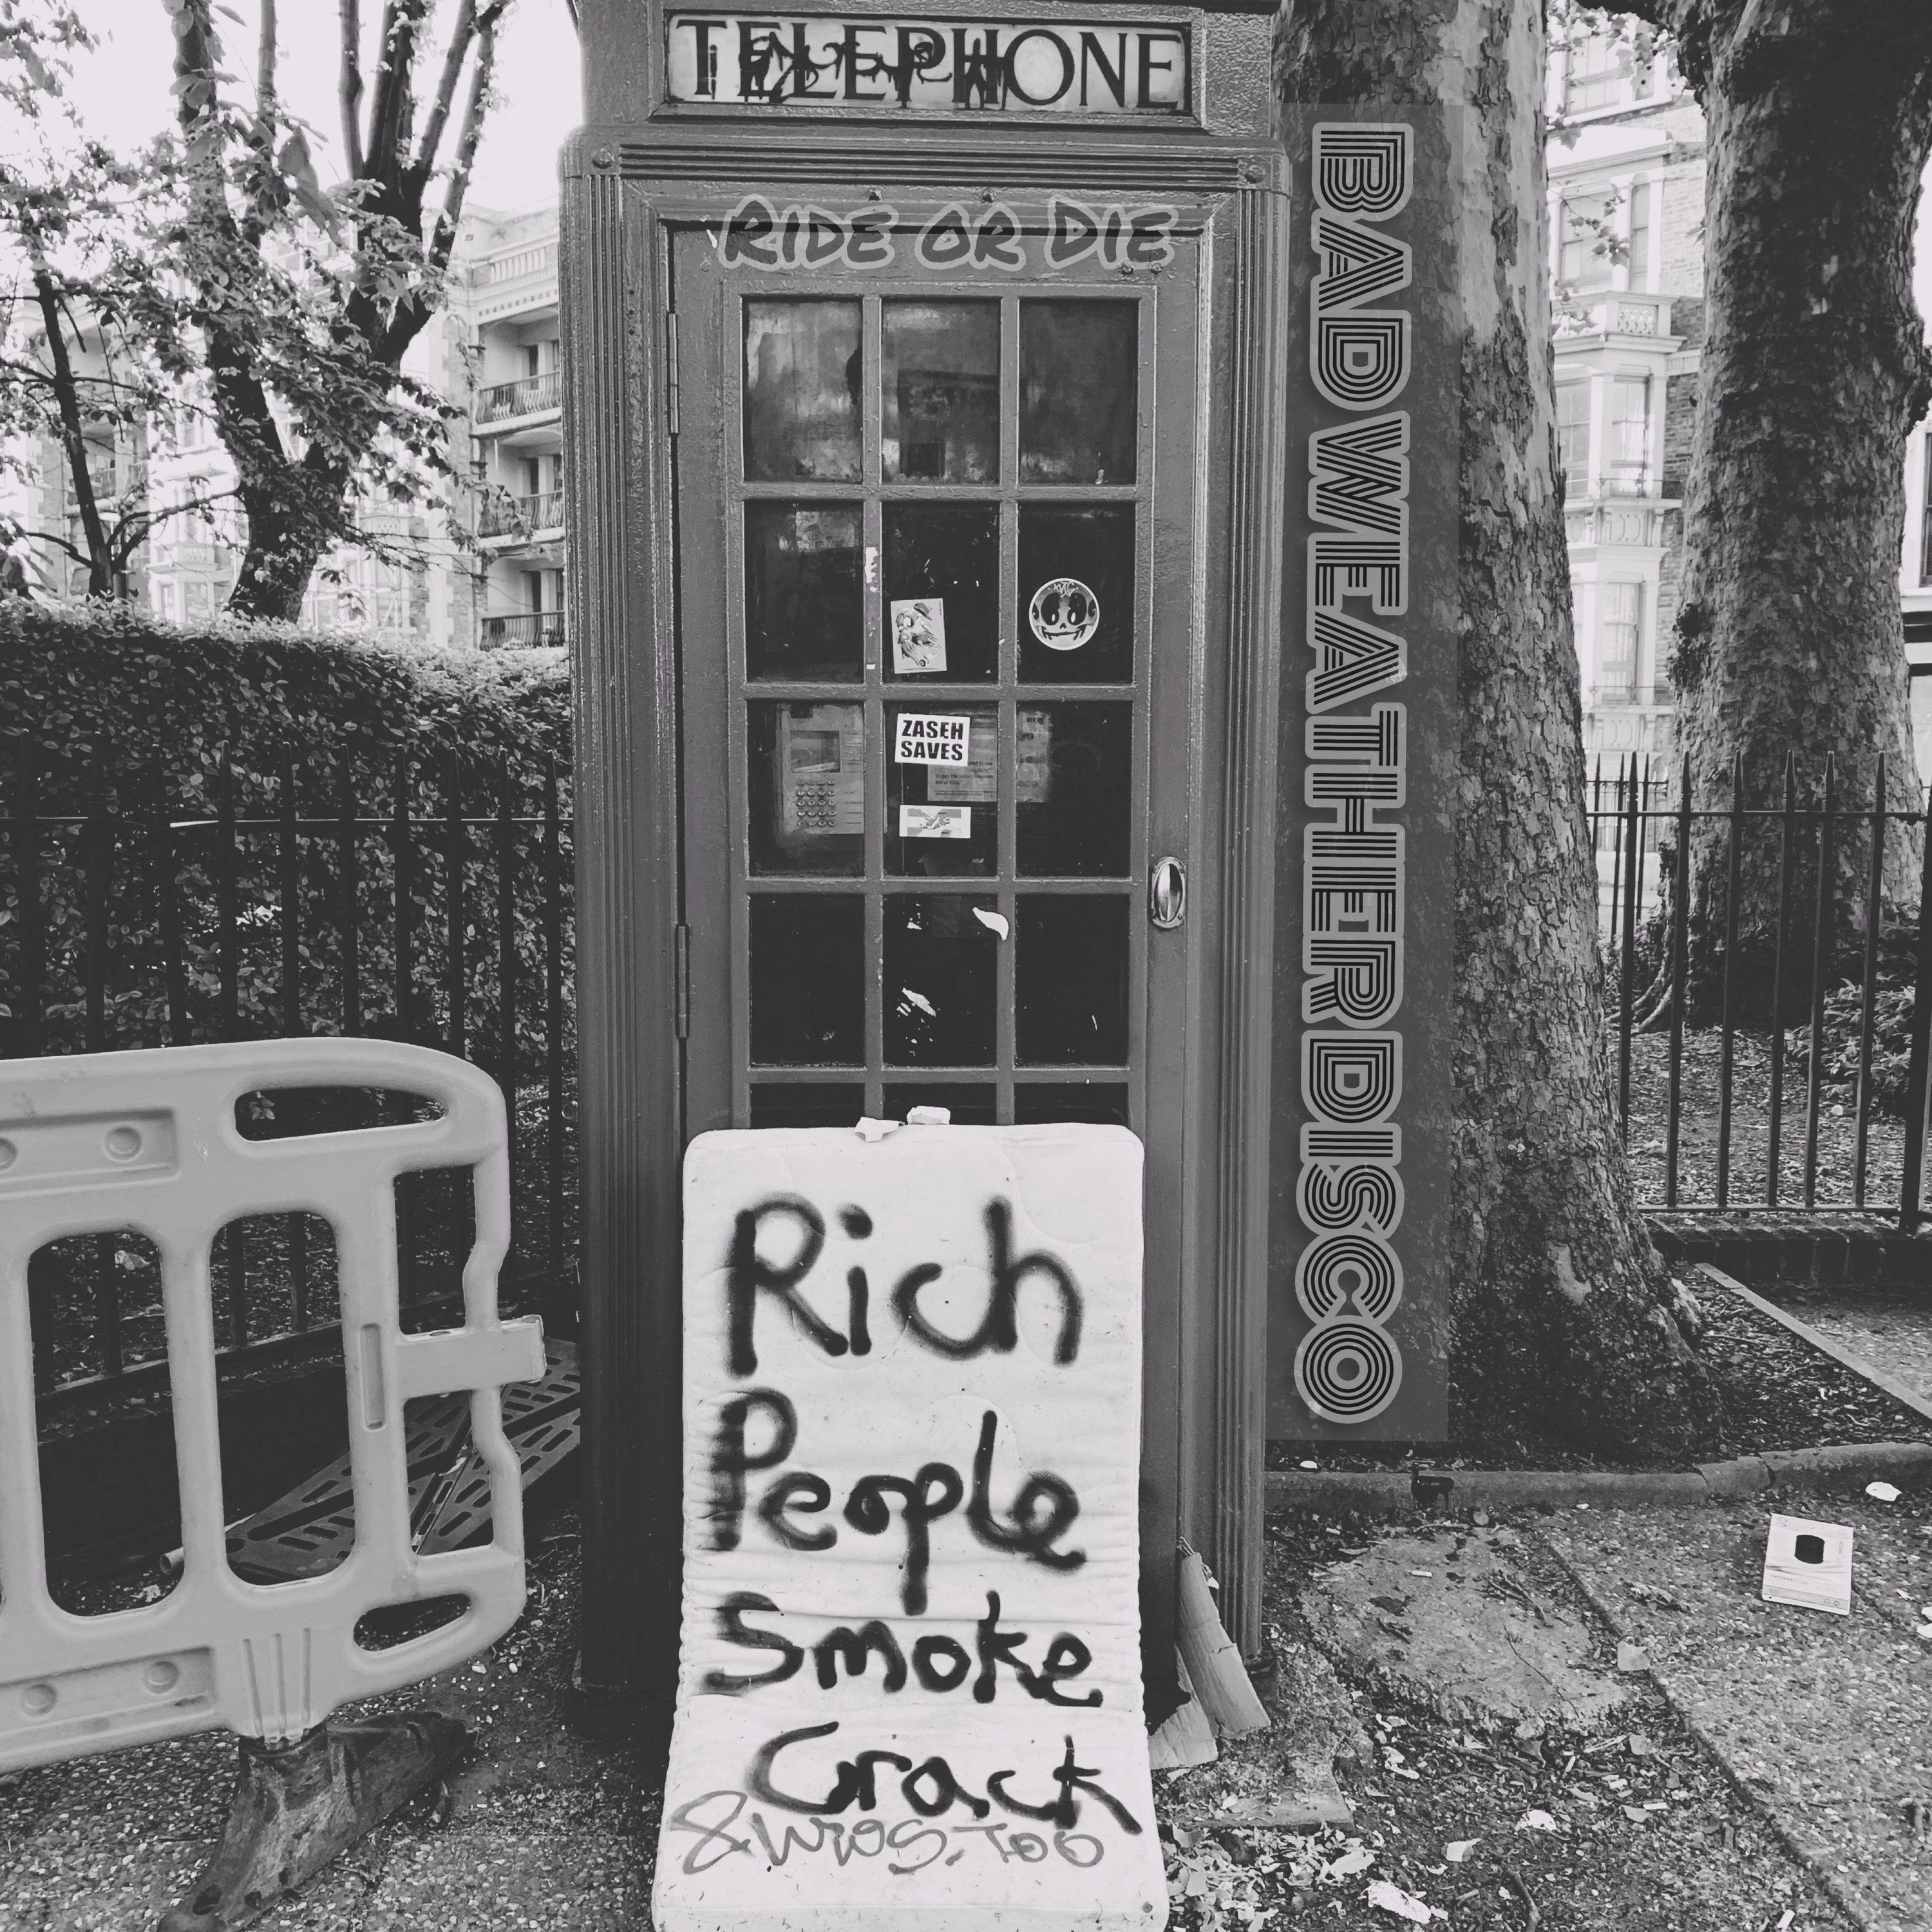 TELEPHONE
RIDE OR DIE
BAD WEATHER DISCO
ZASEH
SAVES
Rich
People
Smoke
Crack